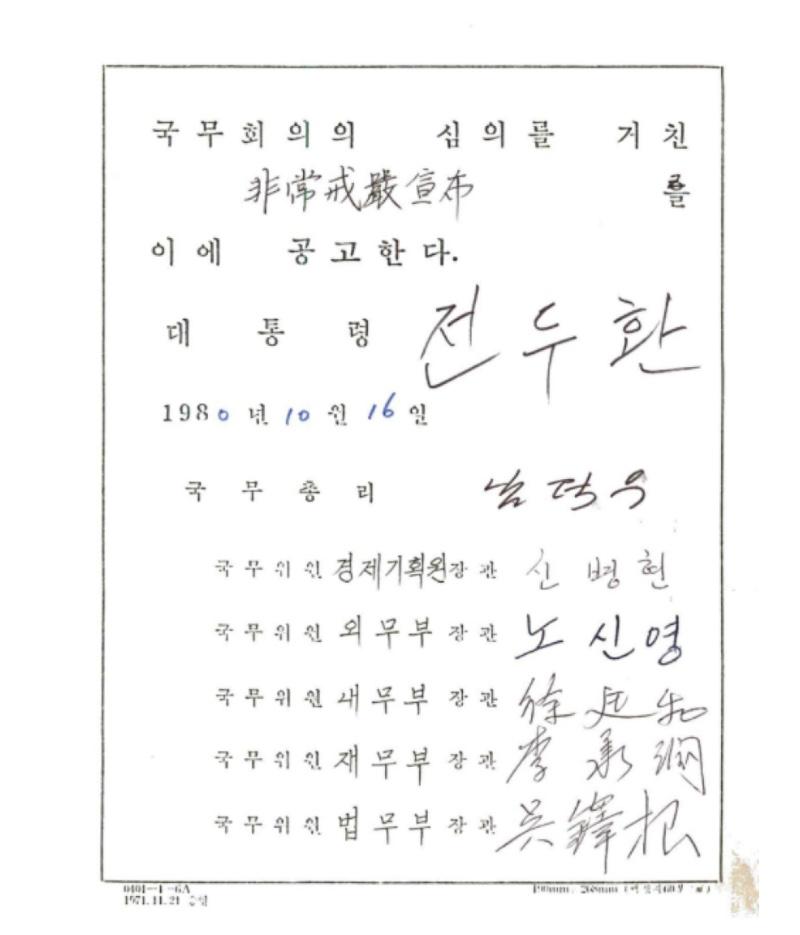 국무회의의 심의를 거친
非常戒嚴宣布 를
이에 공고한다.
대통령 전두환
1980년 10월 16일
국무총리 남덕우
국무위원 경제기획원장관 신병현
국무위원 외무부장관 노신영
국무위원 내무부장관 徐廷和
국무위원 재무부장관 李承潤
국무위원 법무부장관 吳鐸根
0401-1-6A
1971.11.21 승인
190mm. 268mm